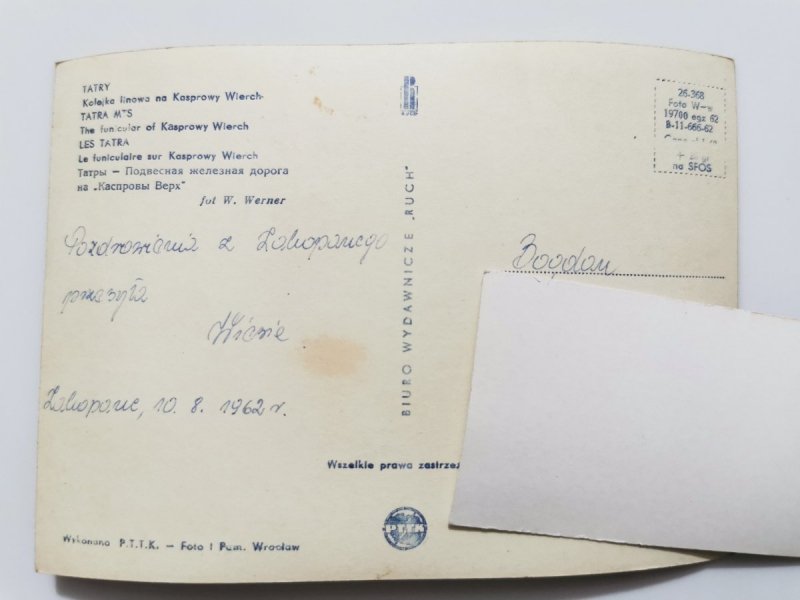 TATRY
Kolejka linowa na Kasprowy Wierch
TATRA MTS
The funicular of Kasprowy Wierch
LES TATRA
Le funiculaire sur Kasprowy Wierch
Татры — Подвесная железная дорога
на „Каспровы Верх"
fot W. Werner
Pozdrowienia z Zakopanego
przesyła
Zakopane, 10. 8. 1962 r.
BIURO WYDAWNICZE „RUCH"
26-368
Foto W-w
19700 egz 62
B-11-666-62
na SFOS
Bogdan
Wszelkie prawa zastrzeż
PTTK
Wykonano P.T.T.K. — Foto i Pam. Wrocław